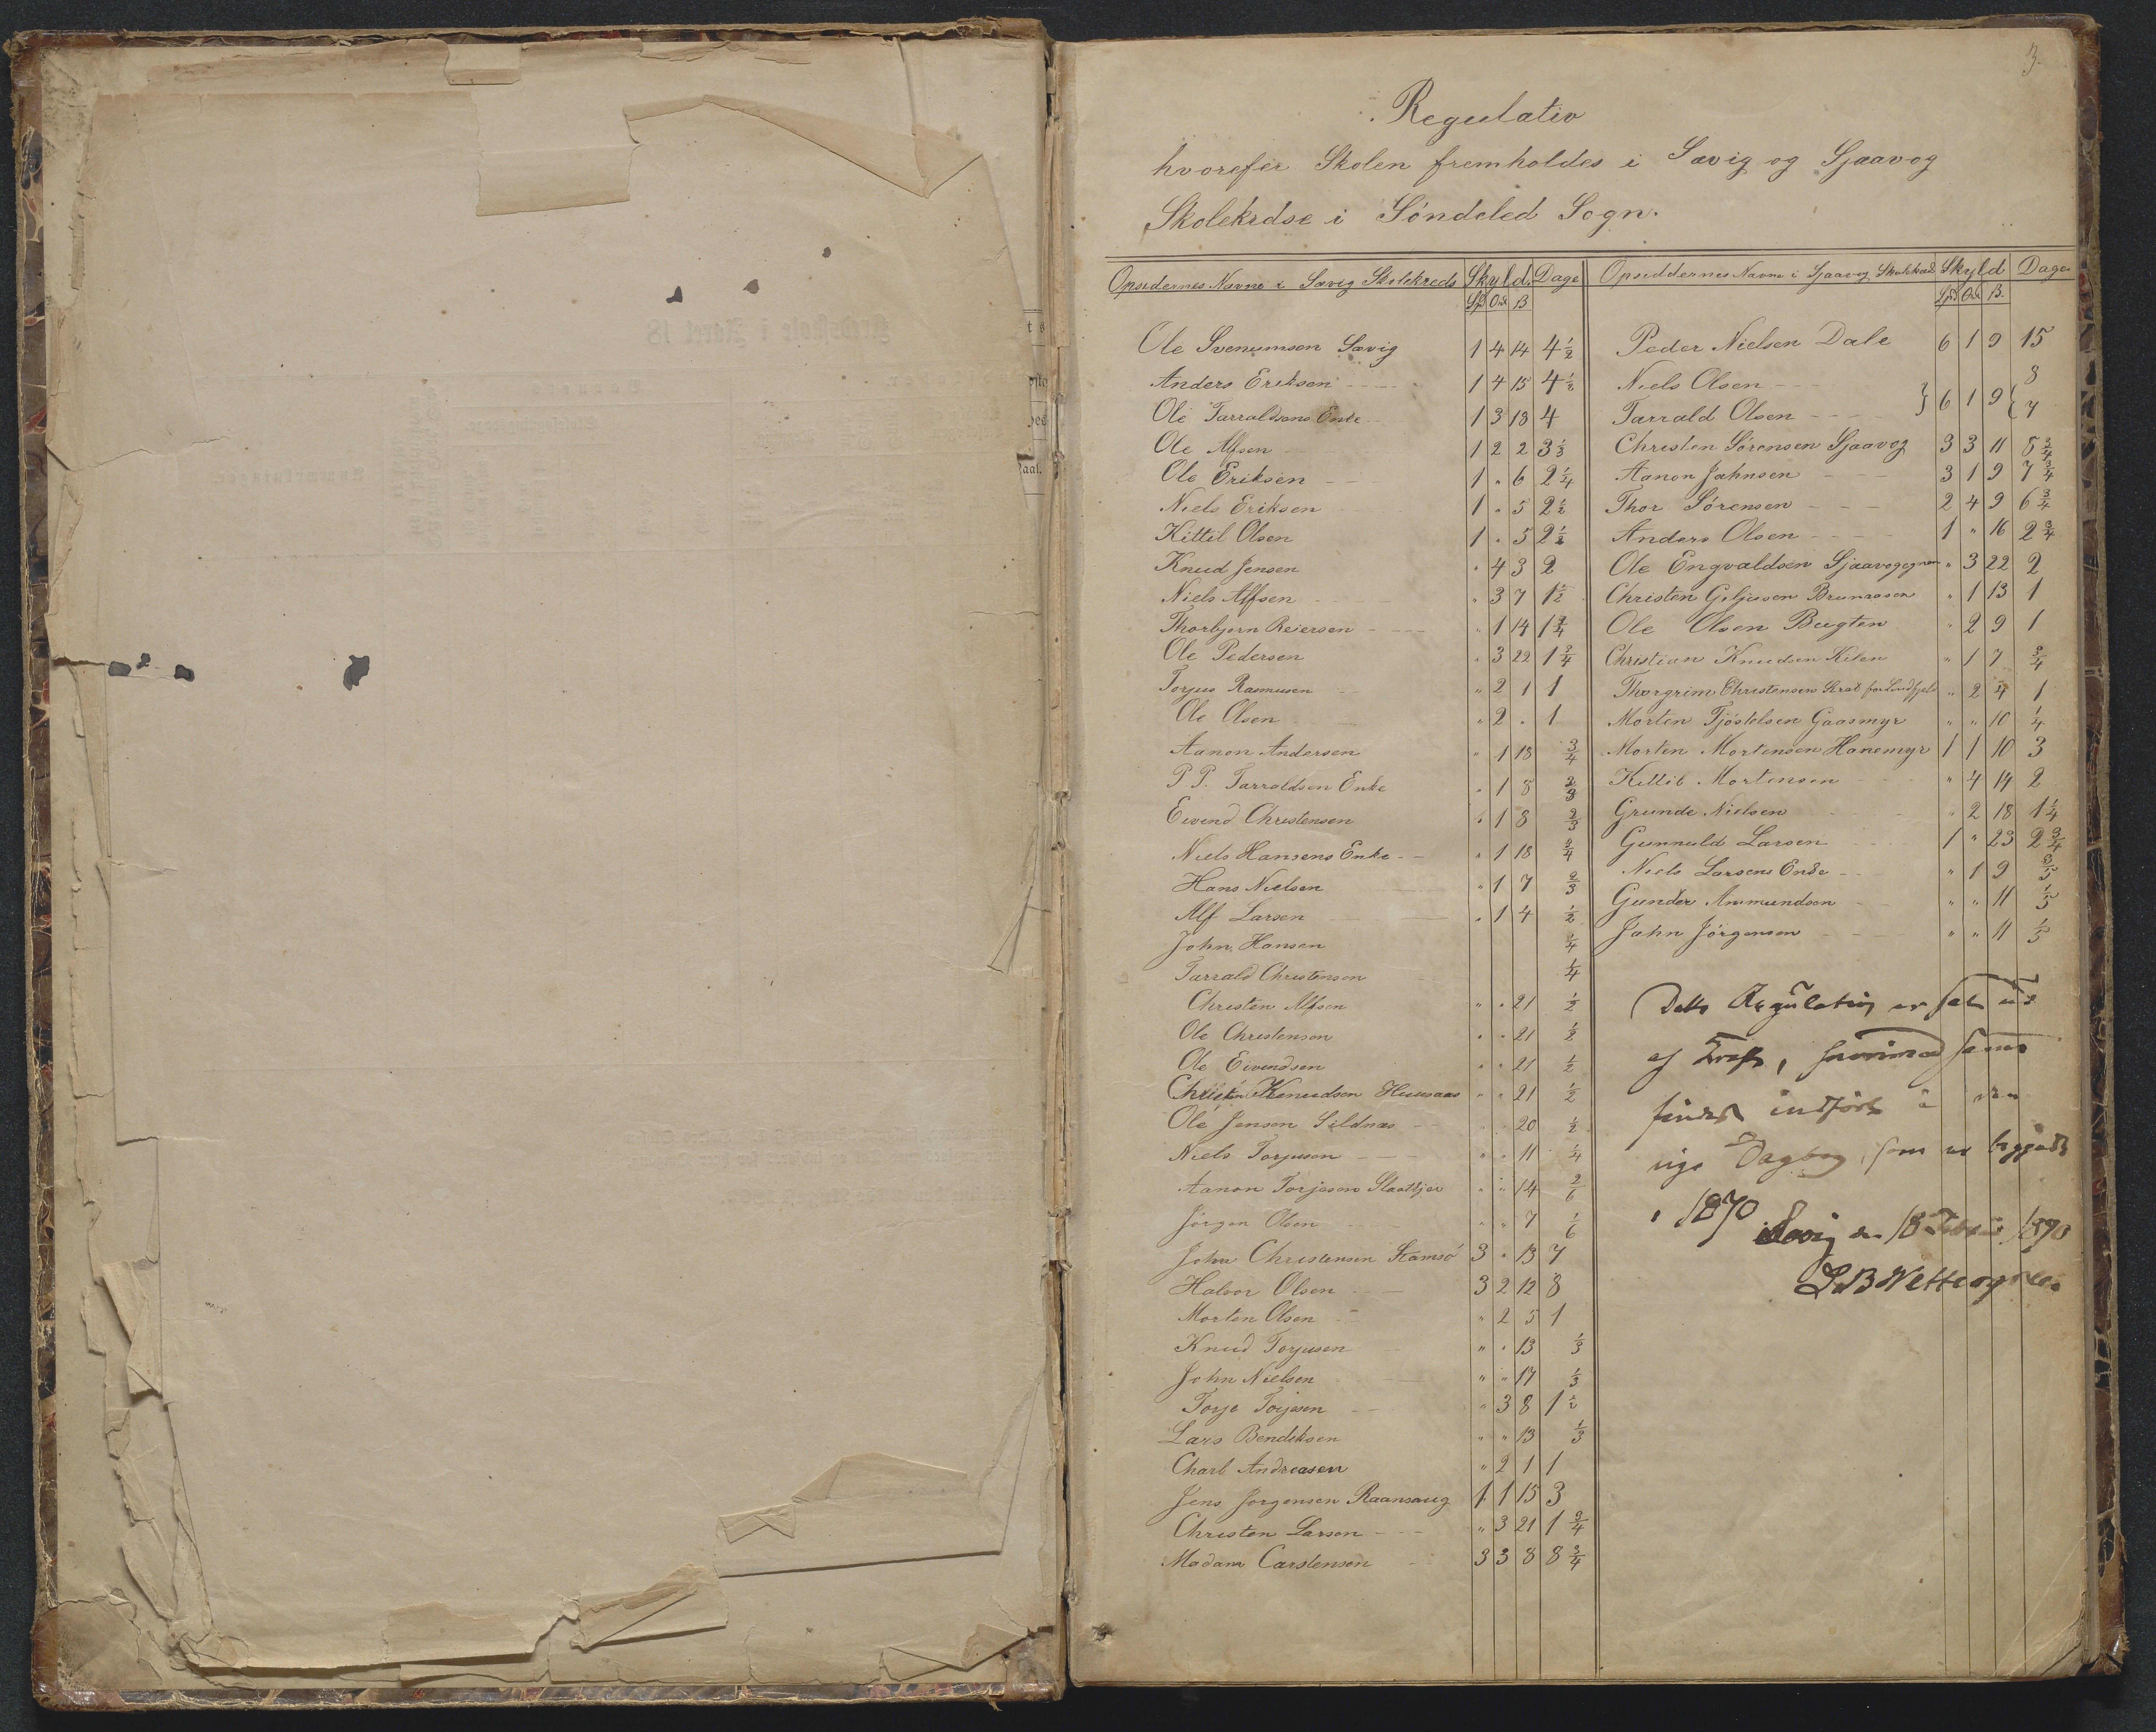 3.
Regulativ
hvorefer Skolen fremholdes i Sævig og Sjaavog
Skolekrdse i Söndeled Sogn.
Opsidernes Navne i Sævig Skolekreds Skyld. Dage
Spd Ort β
Ole Svenumsen Sævig 1 4 14 4 1/2
Anders Eriksen 1 4 15 4 1/2
Ole Tarraldsens Enke 1 3 18 4
Ole Alfsen 1 2 2 3 1/3
Ole Eriksen 1 " 6 2 1/4
Niels Eriksen 1 " 5 2 1/2
Kittil Olsen 1 " 5 2 1/2
Knud Jensen " 4 3 2
Niels Alfsen " 3 7 1 1/2
Thorbjørn Reiersen " 1 14 1 3/4
Ole Pedersen " 3 22 1 3/4
Torjus Rasmusen " 2 1 1
Ole Olsen " 2 " 1
Aanon Andersen " 1 18 3/4
P P. Tarraldsen Enke " 1 8 2/3
Eivend Christensen " 1 8 2/3
Niels Hansens Enke " 1 18 3/4
Hans Nielsen " 1 7 2/3
Alf Larsen " 1 4 1/2
John Hansen 1/4
Tarrald Christensen 1/4
Christen Alfsen " " 21 1/2
Ole Christensen " " 21 1/2
Ole Eivendsen " " 21 1/2
Christen Knudsen Huusaas " " 21 1/2
Ole Jensen Sildnæs " " 20 1/2
Niels Torjusen " " 11 1/4
Aanon Torjesen " " 14 2/6
Jörgen Olsen " " 7 1/6
John Christensen Stamsö 3 " 13 7
Halvor Olsen 3 2 12 8
Morten Olsen " 2 5 1
Knud Torjusen " " 13 1/3
John Nielsen " " 17 1/3
Torje Torjesen " 3 8 1 1/2
Lars Bendiksen " " 13 1/3
Charl Andreasen " 2 1 1
Jens Jorgensen 1 1 15 3
Christen Larsen " 3 21 1 3/4
Madam Carstensen 3 3 8 8 3/4
Opsiddernes Navne i Sjaavog Skolekreds Skyld Dage
Spd Ort β.
Peder Nielsen Dale 6 1 9 15
Niels Olsen 8
Tarrald Olsen } 6 1 9 { 7
Christen Sörensen Sjaavog 3 3 11 8 3/4
Aanon Jahnsen 3 1 9 7 3/4
Thor Sörensen 2 4 9 6 3/4
Anders Olsen 1 " 16 2 3/4
Ole Engvaldsen " 3 22 2
Christen Geljusen " 1 13 1
Ole Olsen Bugten " 2 9 1
Christian Knudsen Kilen " 1 7 3/4
Thorgrim Christensen " 2 4 1
Morten Tjöstelsen Gaasmyr " " 10 1/4
Morten Mortensen Hanemyr 1 1 10 3
Kittil Mortensen " 4 14 2
Grunde Nielsen " 2 18 1 1/4
Gunnuld Larsen 1 " 23 2 3/4
Niels Larsens Enke " 1 9 3/5
Gunder Ammundsen " " 11 1/5
Jahn Jörgensen " " 11 1/5
Dette Regulativ er sat ud
af Kraft,
findes indført i den
nye Dagbog, som er begyndt
i 1870
Sævig den 18 Februar 1870
Kredsskole i Aaret 18